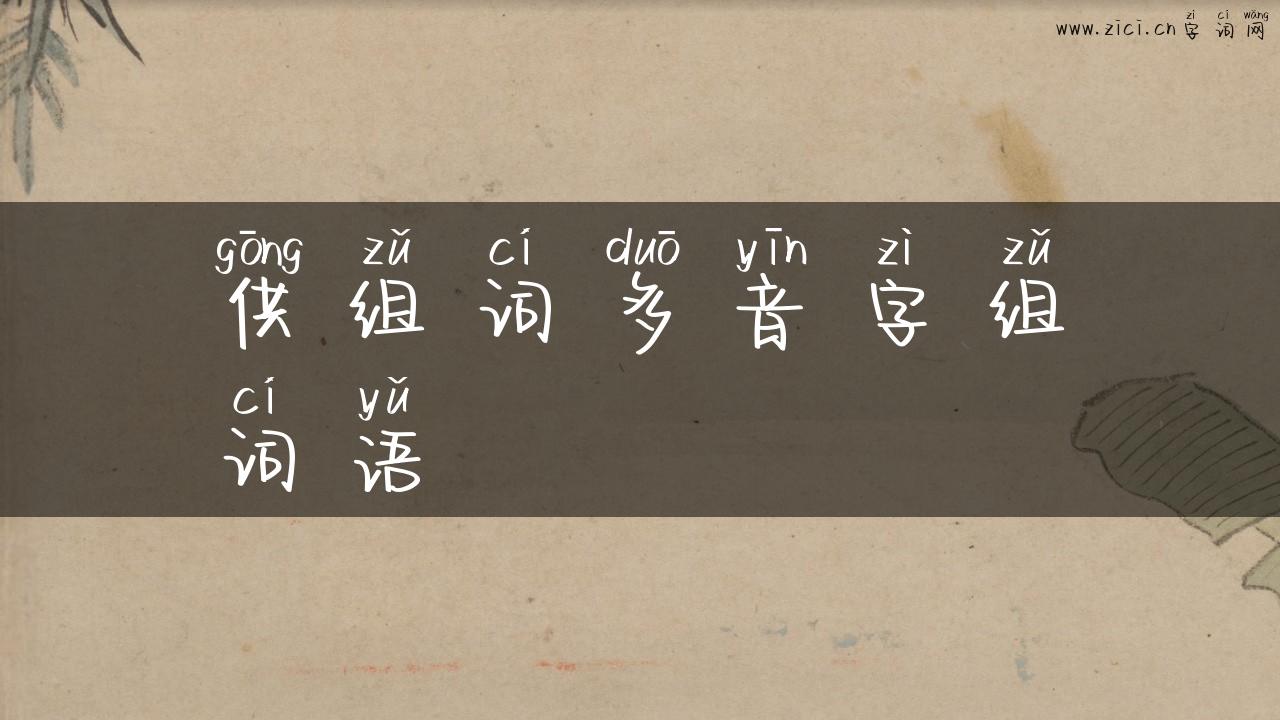 zì cí wǎng
www.zici.cn 字词网
gōng zǔ cí duō yīn zì zǔ
供组词多音字组
cí yǔ
词语